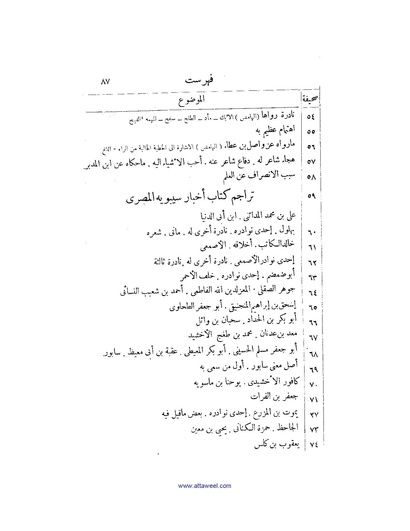 فهرست ٨٧
صحيفة الموضوع
٥٤ نادرة رواها (الهامش) الاتك ــ داد ــ الطلح ــ سفيح ــ البيمه
٥٥ اهتمام عظيم به
٥٦ مارواه عن واصل بن عطاء (الهامش) الاشارة الى الخطبة الخالية من الراء
٥٧ هجاء شاعر له . دفاع شاعر عنه . أحب الاشياء اليه . ماحكاه عن ابن المدبر
٥٨ سبب الانصراف عن العلم
٥٩ تراجم كتاب أخبار سيبويه المصرى
على بن محمد المدائنى . ابن أبى الدنيا
٦٠ بهلول . إحدى نوادره . نادرة أخرى له . مانى . شعره
٦١ خالد الكاتب . أخلاقه . الأصمعى
٦٢ إحدى نوادر الأصمعى . نادرة أخرى له . نادرة ثالثة
٦٣ أبو ضمضم . إحدى نوادره . خلف الأحمر
٦٤ جوهر الصقلى . المعز لدين الله الفاطمى . أحمد بن شعيب النسائى
٦٥ إسحق بن إبراهيم المنجنيقى . أبو جعفر الطحاوى
٦٦ أبو بكر بن الحداد . سحبان بن وائل
٦٧ معد بن عدنان . محمد بن طغج الأخشيد
٦٨ أبو جعفر مسلم الحسينى . أبو بكر المعيطى . عقبة بن أبى معيط . سابور
٦٩ أصل معنى سابور . أول من سمى به
٧٠ كافور الأخشيدى . يوحنا بن ماسويه
٧١ جعفر بن الفرات
٣٧ يموت بن المزرع . إحدى نوادره . بعض ماقيل فيه
٧٣ الجاحظ . حمزة الكنانى . يحيى بن معين
٧٤ يعقوب بن كلس
www.attaweel.com